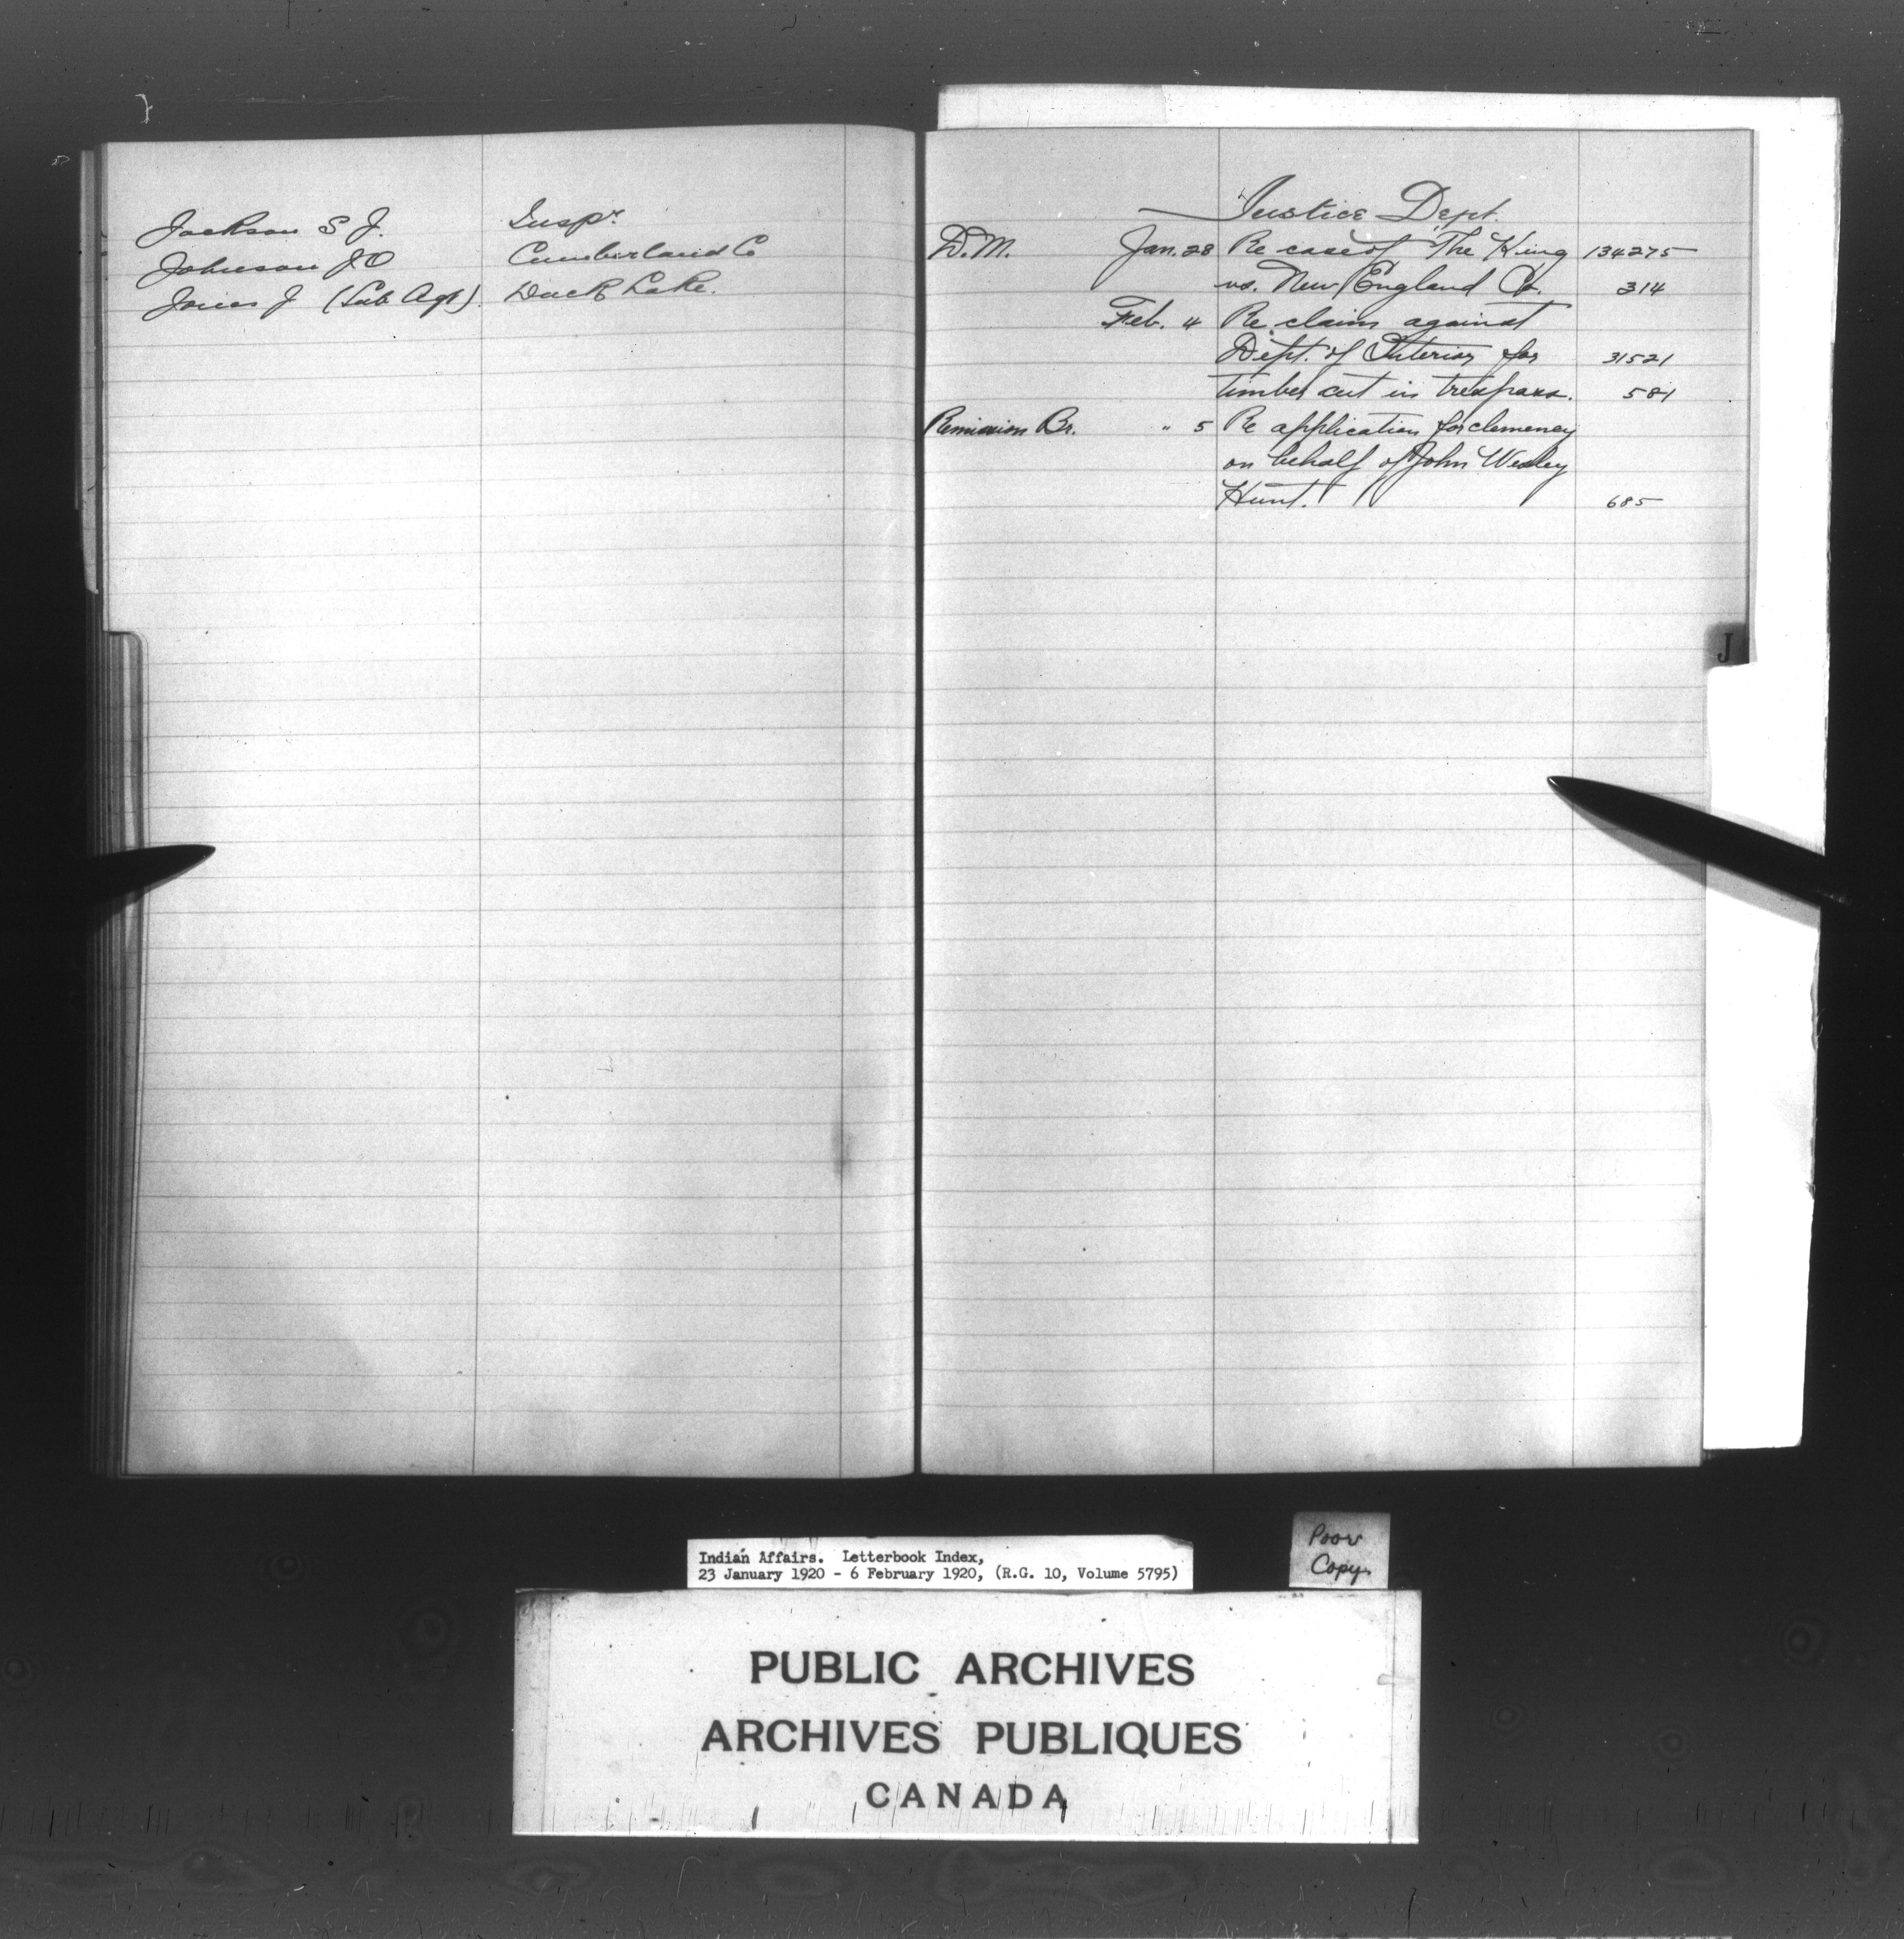 Jackson S J. Inspr.
Johnson J O Cumberland Co
Jones J (Sub Agt). Duck Lake.
Justice Dept.
D.M. Jan. 28 Re case of "The King 134275
vs. New England Co. 314
Feb. 4 Re claim against
Dept. of Interior for 31521
timber cut in trespass. 581
Remission Br. " 5 Re application for clemency
on behalf of John Wesley
Hunt. 685
J
Indian Affairs. Letterbook Index,
23 January 1920 - 6 February 1920, (R.G. 10, Volume 5795)
Poor
Copy.
PUBLIC ARCHIVES
ARCHIVES PUBLIQUES
CANADA